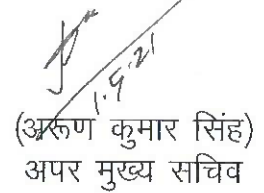 1.9.21
(अरूण कुमार सिंह)
अपर मुख्य सचिव